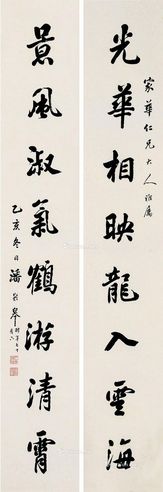 家華仁兄大人雅屬
光華相映龍入雲海
景風淑氣鶴游清霄
乙亥冬日潘齡皋時年七十有六